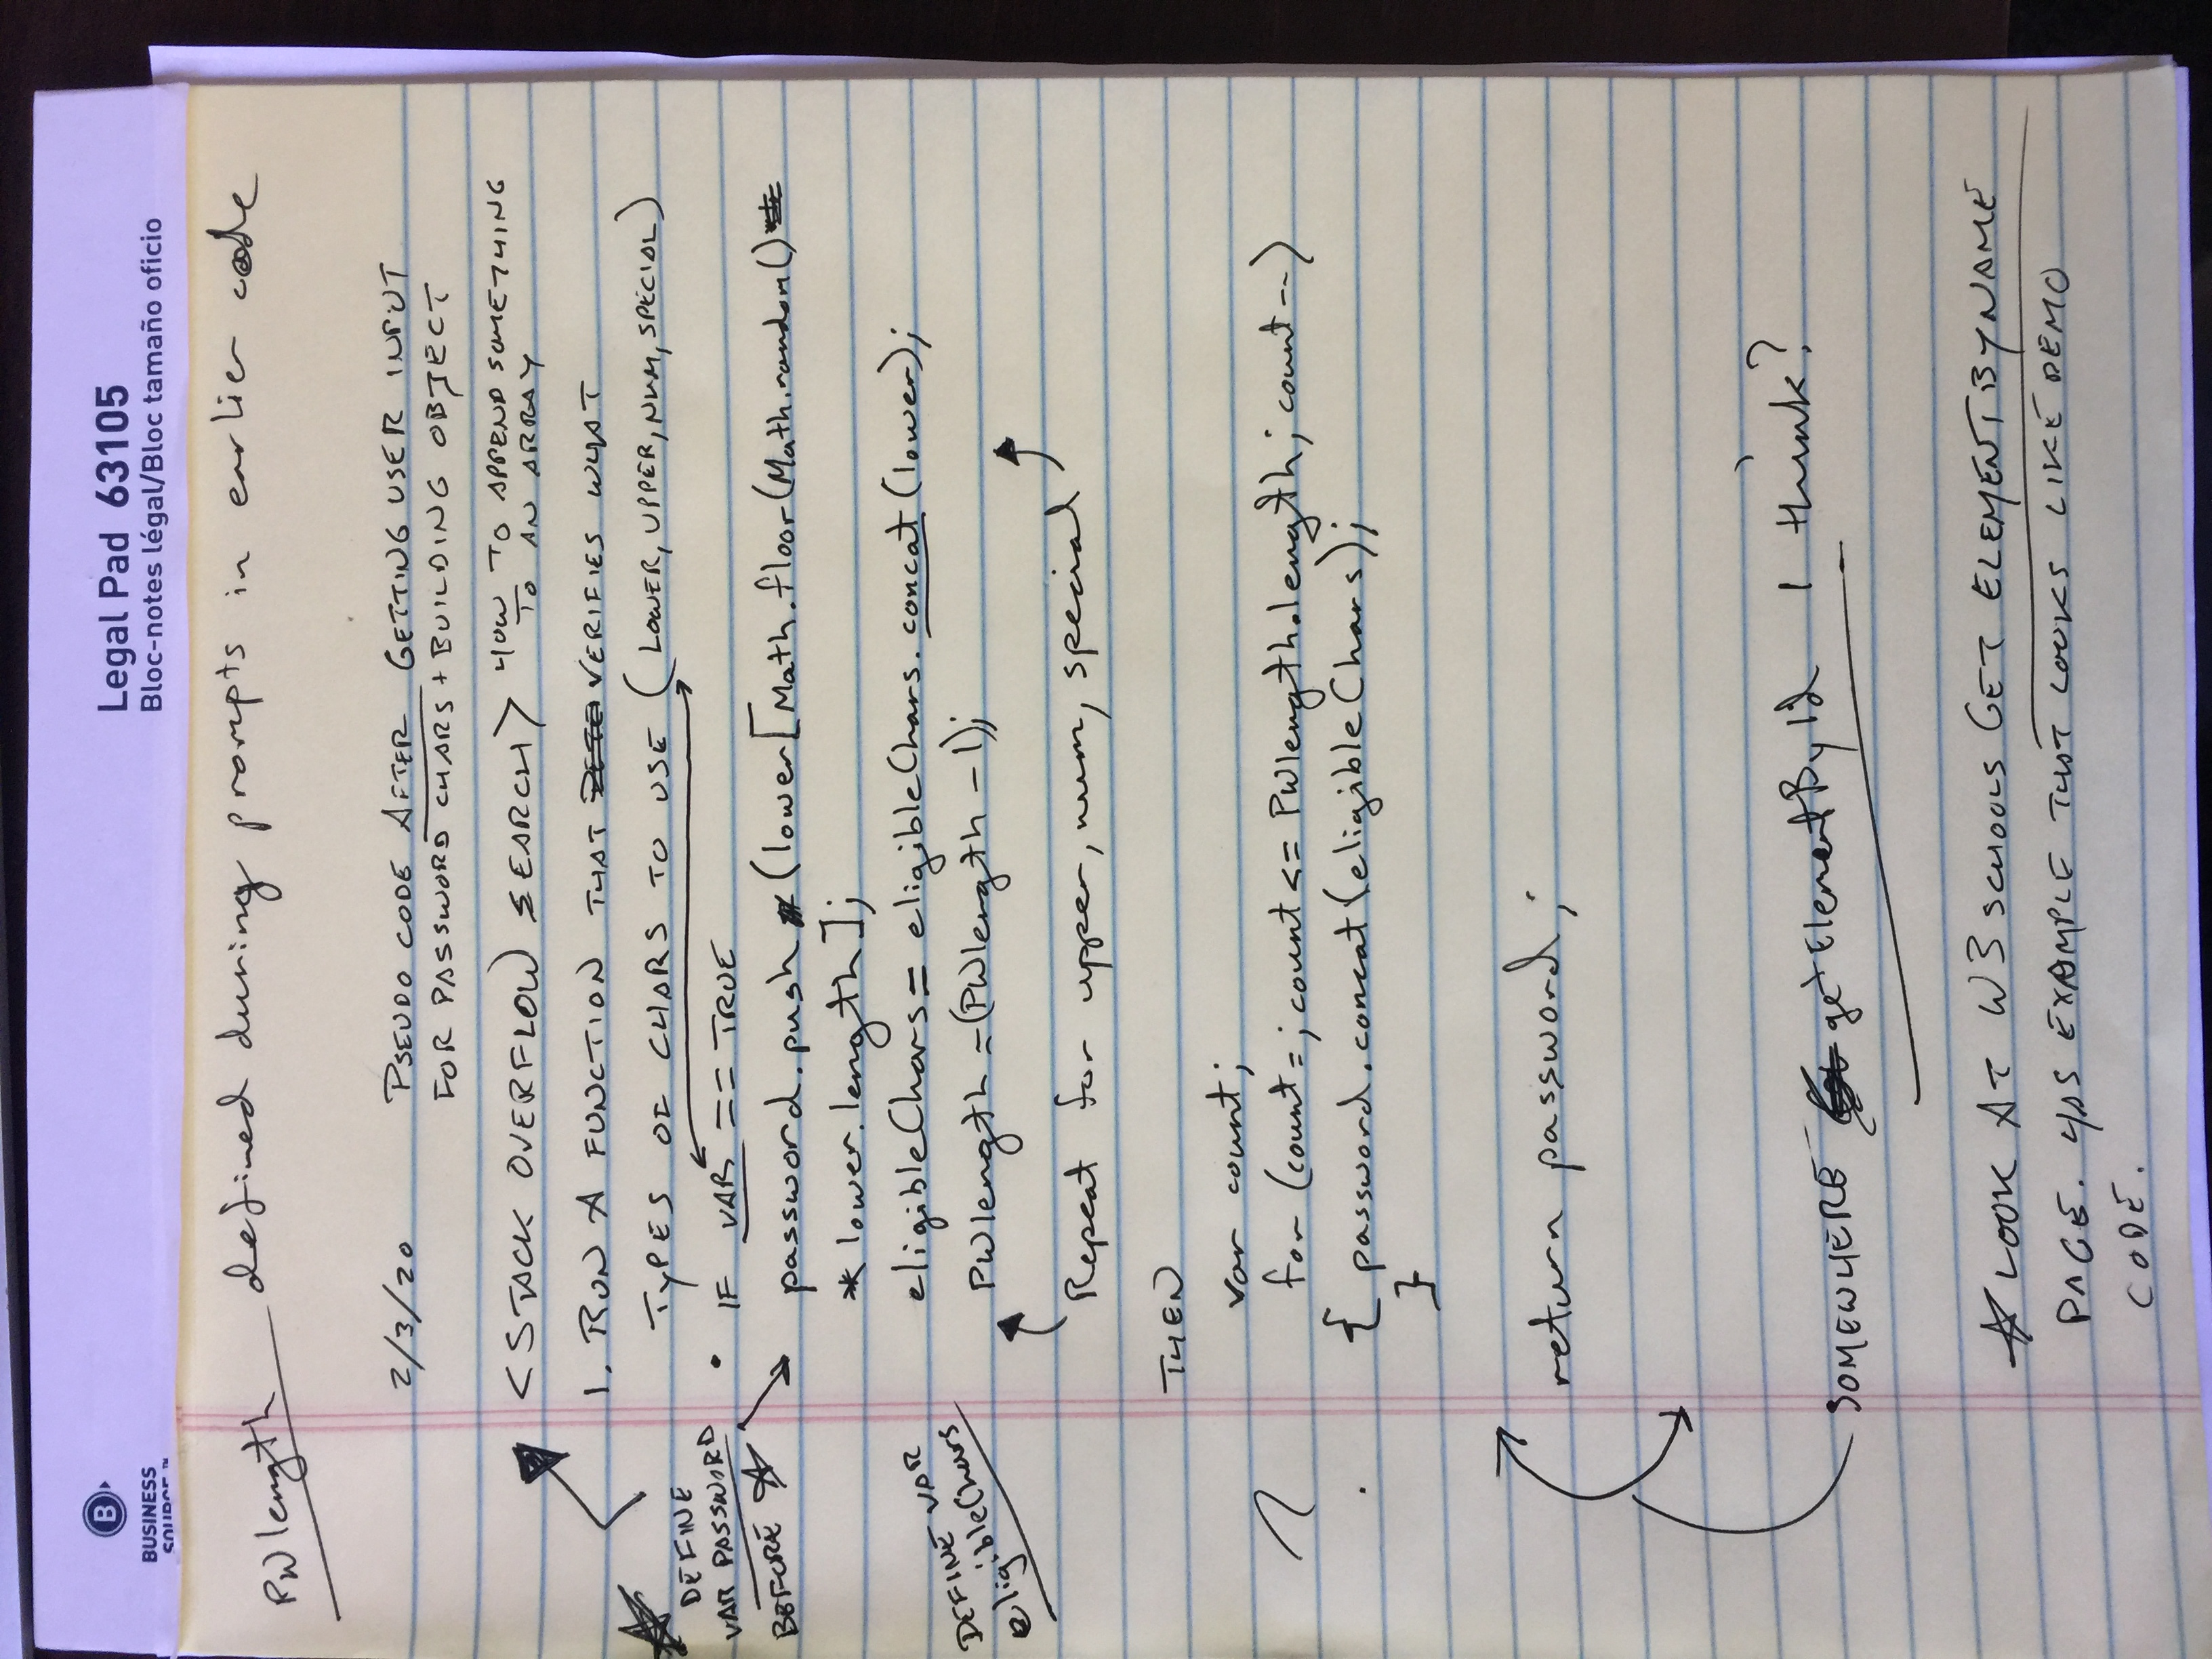 B
BUSINESS
SOURCE ™
Legal Pad 63105
Bloc-notes légal/Bloc tamaño oficio
PWlength defined during prompts in earlier code
2/3/20 PSEUDO CODE AFTER GETTING USER INPUT
FOR PASSWORD CHARS + BUILDING OBJECT
<STACK OVERFLOW SEARCH> HOW TO APPEND SOMETHING
TO AN ARRAY
1. RUN A FUNCTION THAT VERIFIES WHAT
TYPES OF CHARS TO USE (LOWER, UPPER, NUM, SPECIAL)
DEFINE
VAR PASSWORD
BEFORE ☆
• IF VAR == TRUE
password.push (lower[Math.floor(Math.random()
* lower.length];
eligibleChars = eligibleChars.concat(lower);
PWlength =(PWlength - 1);
DEFINE VAR
eligibleChars
Repeat for upper, num, special
THEN
var count;
? for (count=; count <= PWlength.length; count--)
{ password.concat(eligibleChars);
}
return password;
SOMEWHERE getElementById I think?
☆ LOOK AT W3 SCHOOLS GET ELEMENT BY NAME
PAGE. HAS EXAMPLE THAT LOOKS LIKE DEMO
CODE.